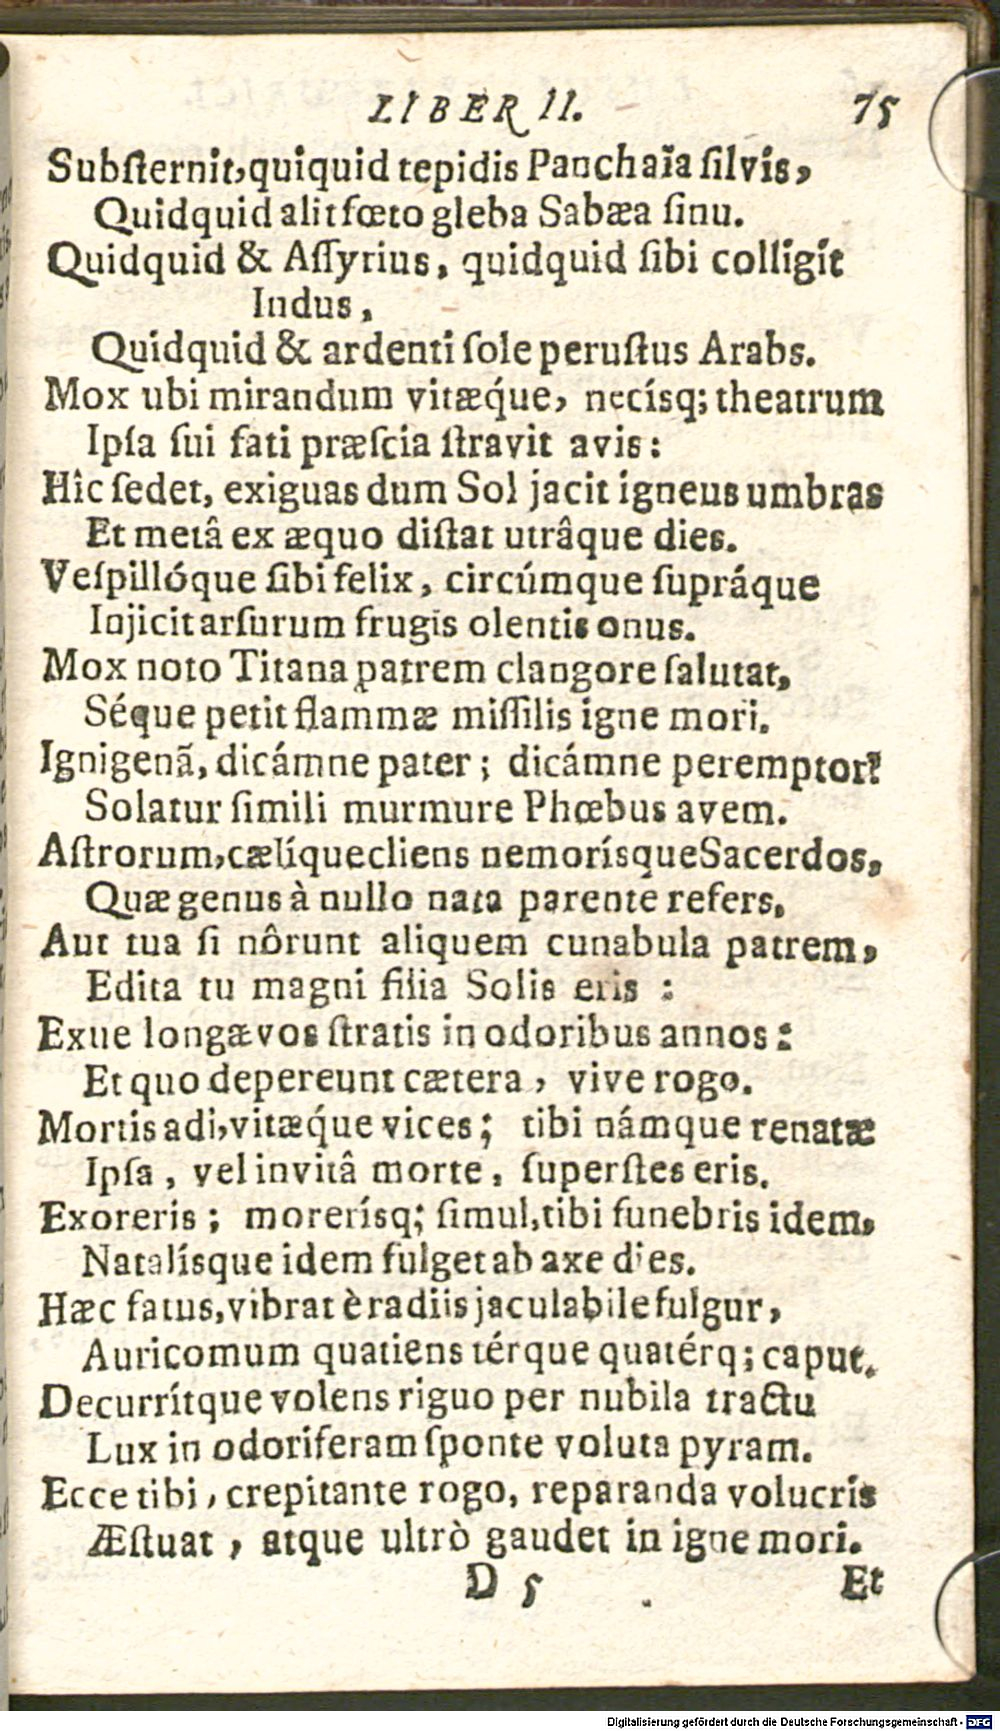 LIBER II. 75
Subſternit, quiquid tepidis Panchaïa ſilvis,
Quidquid alit fœto gleba Sabæa ſinu.
Quidquid & Aſſyrius, quidquid ſibi colligit
Indus,
Quidquid & ardenti ſole peruſtus Arabs.
Mox ubi mirandum vitæq́ue, necísq; theatrum
Ipſa ſui fati præſcia ſtravit avis:
Hîc ſedet, exiguas dum Sol jacit igneus umbras
Et metâ ex æquo diſtat utrâque dies.
Veſpillóque ſibi felix, circúmque ſupráque
Injicit arſurum frugis olentis onus.
Mox noto Titana patrem clangore ſalutat,
Séque petit flammæ miſſilis igne mori.
Ignigenã, dicámne pater; dicámne peremptor?
Solatur ſimili murmure Phœbus avem.
Aſtrorum, cælíque cliens nemorísque Sacerdos,
Quæ genus à nullo nata parente refers,
Aut tua ſi nôrunt aliquem cunabula patrem,
Edita tu magni filia Solis eris:
Exue longævos ſtratis in odoribus annos:
Et quo depereunt cætera, vive rogo.
Mortis adi, vitæq́ue vices; tibi námque renatæ
Ipſa, vel invitâ morte, ſuperſtes eris.
Exoreris; morerísq; ſimul, tibi funebris idem,
Natalísque idem fulget ab axe dies.
Hæc fatus, vibrat è radiis jaculabile fulgur,
Auricomum quatiens térque quatérq; caput.
Decurrítque volens riguo per nubila tractu
Lux in odoriferam ſponte voluta pyram.
Ecce tibi, crepitante rogo, reparanda volucris
Æſtuat, atque ultrò gaudet in igne mori.
D 5 Et
Digitalisierung gefördert durch die Deutsche Forschungsgemeinschaft - DFG